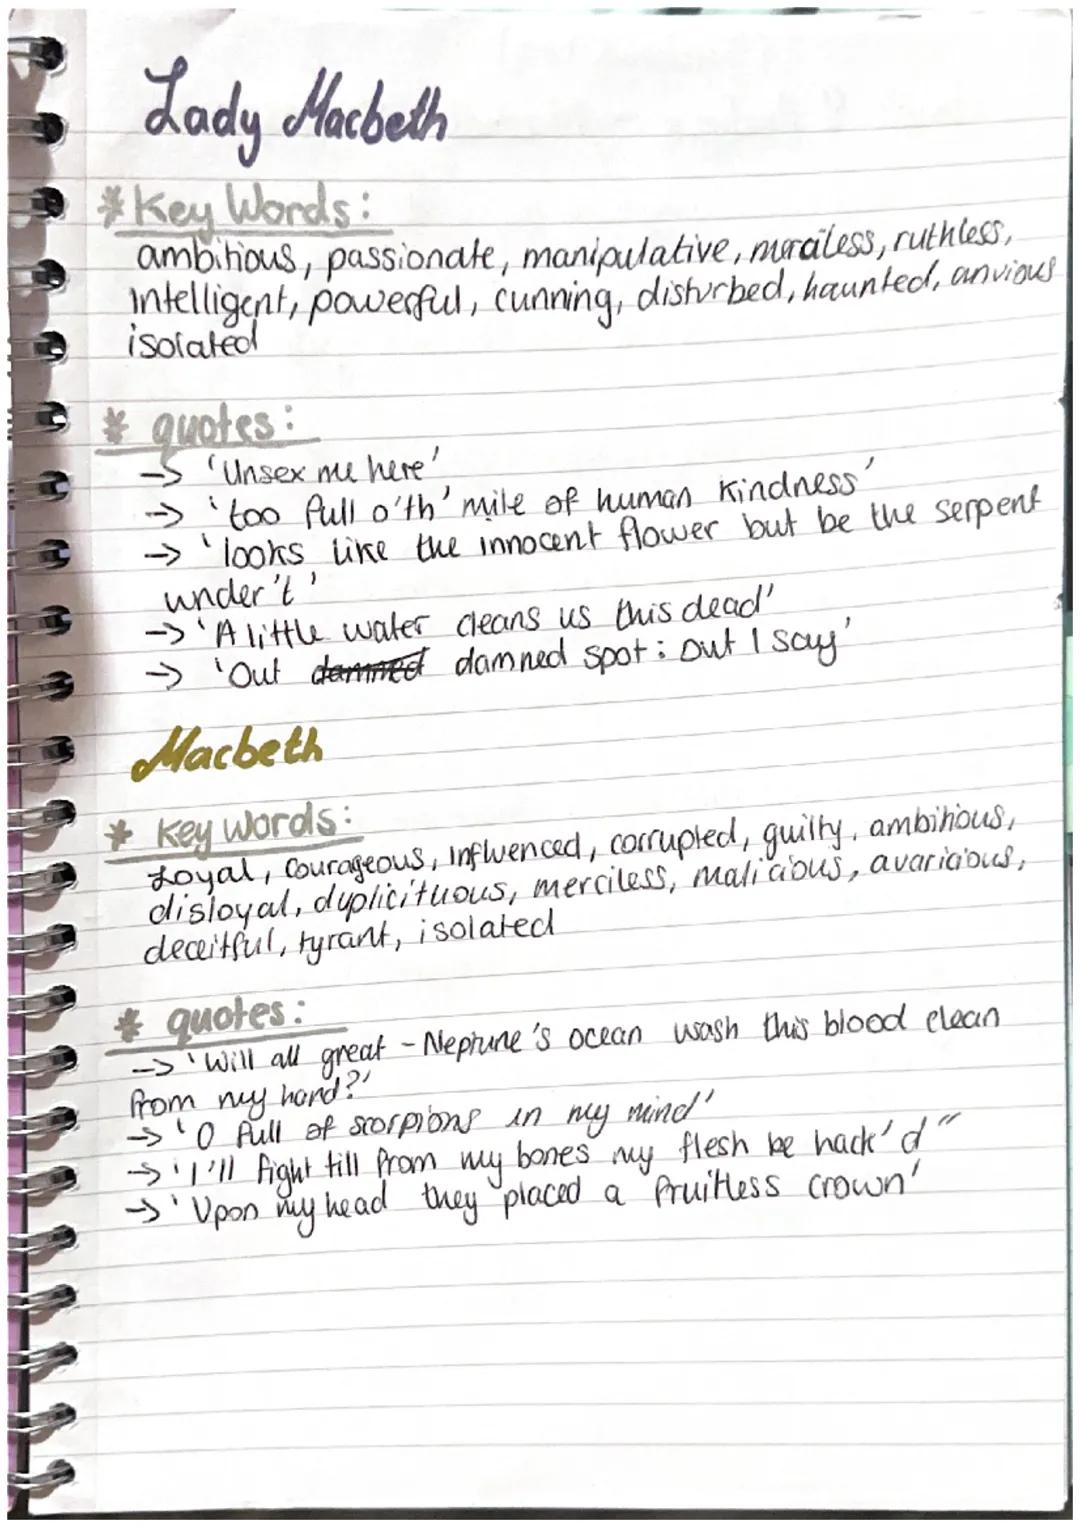 Lady Macbeth
* Key Words:
ambitious, passionate, manipulative, merciless, ruthless,
intelligent, powerful, cunning, disturbed, haunted, anvious
isolated
* quotes:
-> 'Unsex me here'
-> 'too full o'th' milk of human kindness'
-> 'looks like the innocent flower but be the serpent
under't'
-> 'A little water cleans us this dead'
-> 'Out damned damned spot: out I say'
Macbeth
* Key words:
Loyal, Courageous, influenced, corrupted, guilty, ambitious,
disloyal, duplicituous, merciless, malicious, avaricious,
deceitful, tyrant, isolated
* quotes:
-> 'Will all great - Neptune's ocean wash this blood clean
from my hand?'
-> 'O full of scorpions in my mind'
-> 'I'll fight till from my bones my flesh be hack'd"
-> 'Upon my head they placed a fruitless crown'